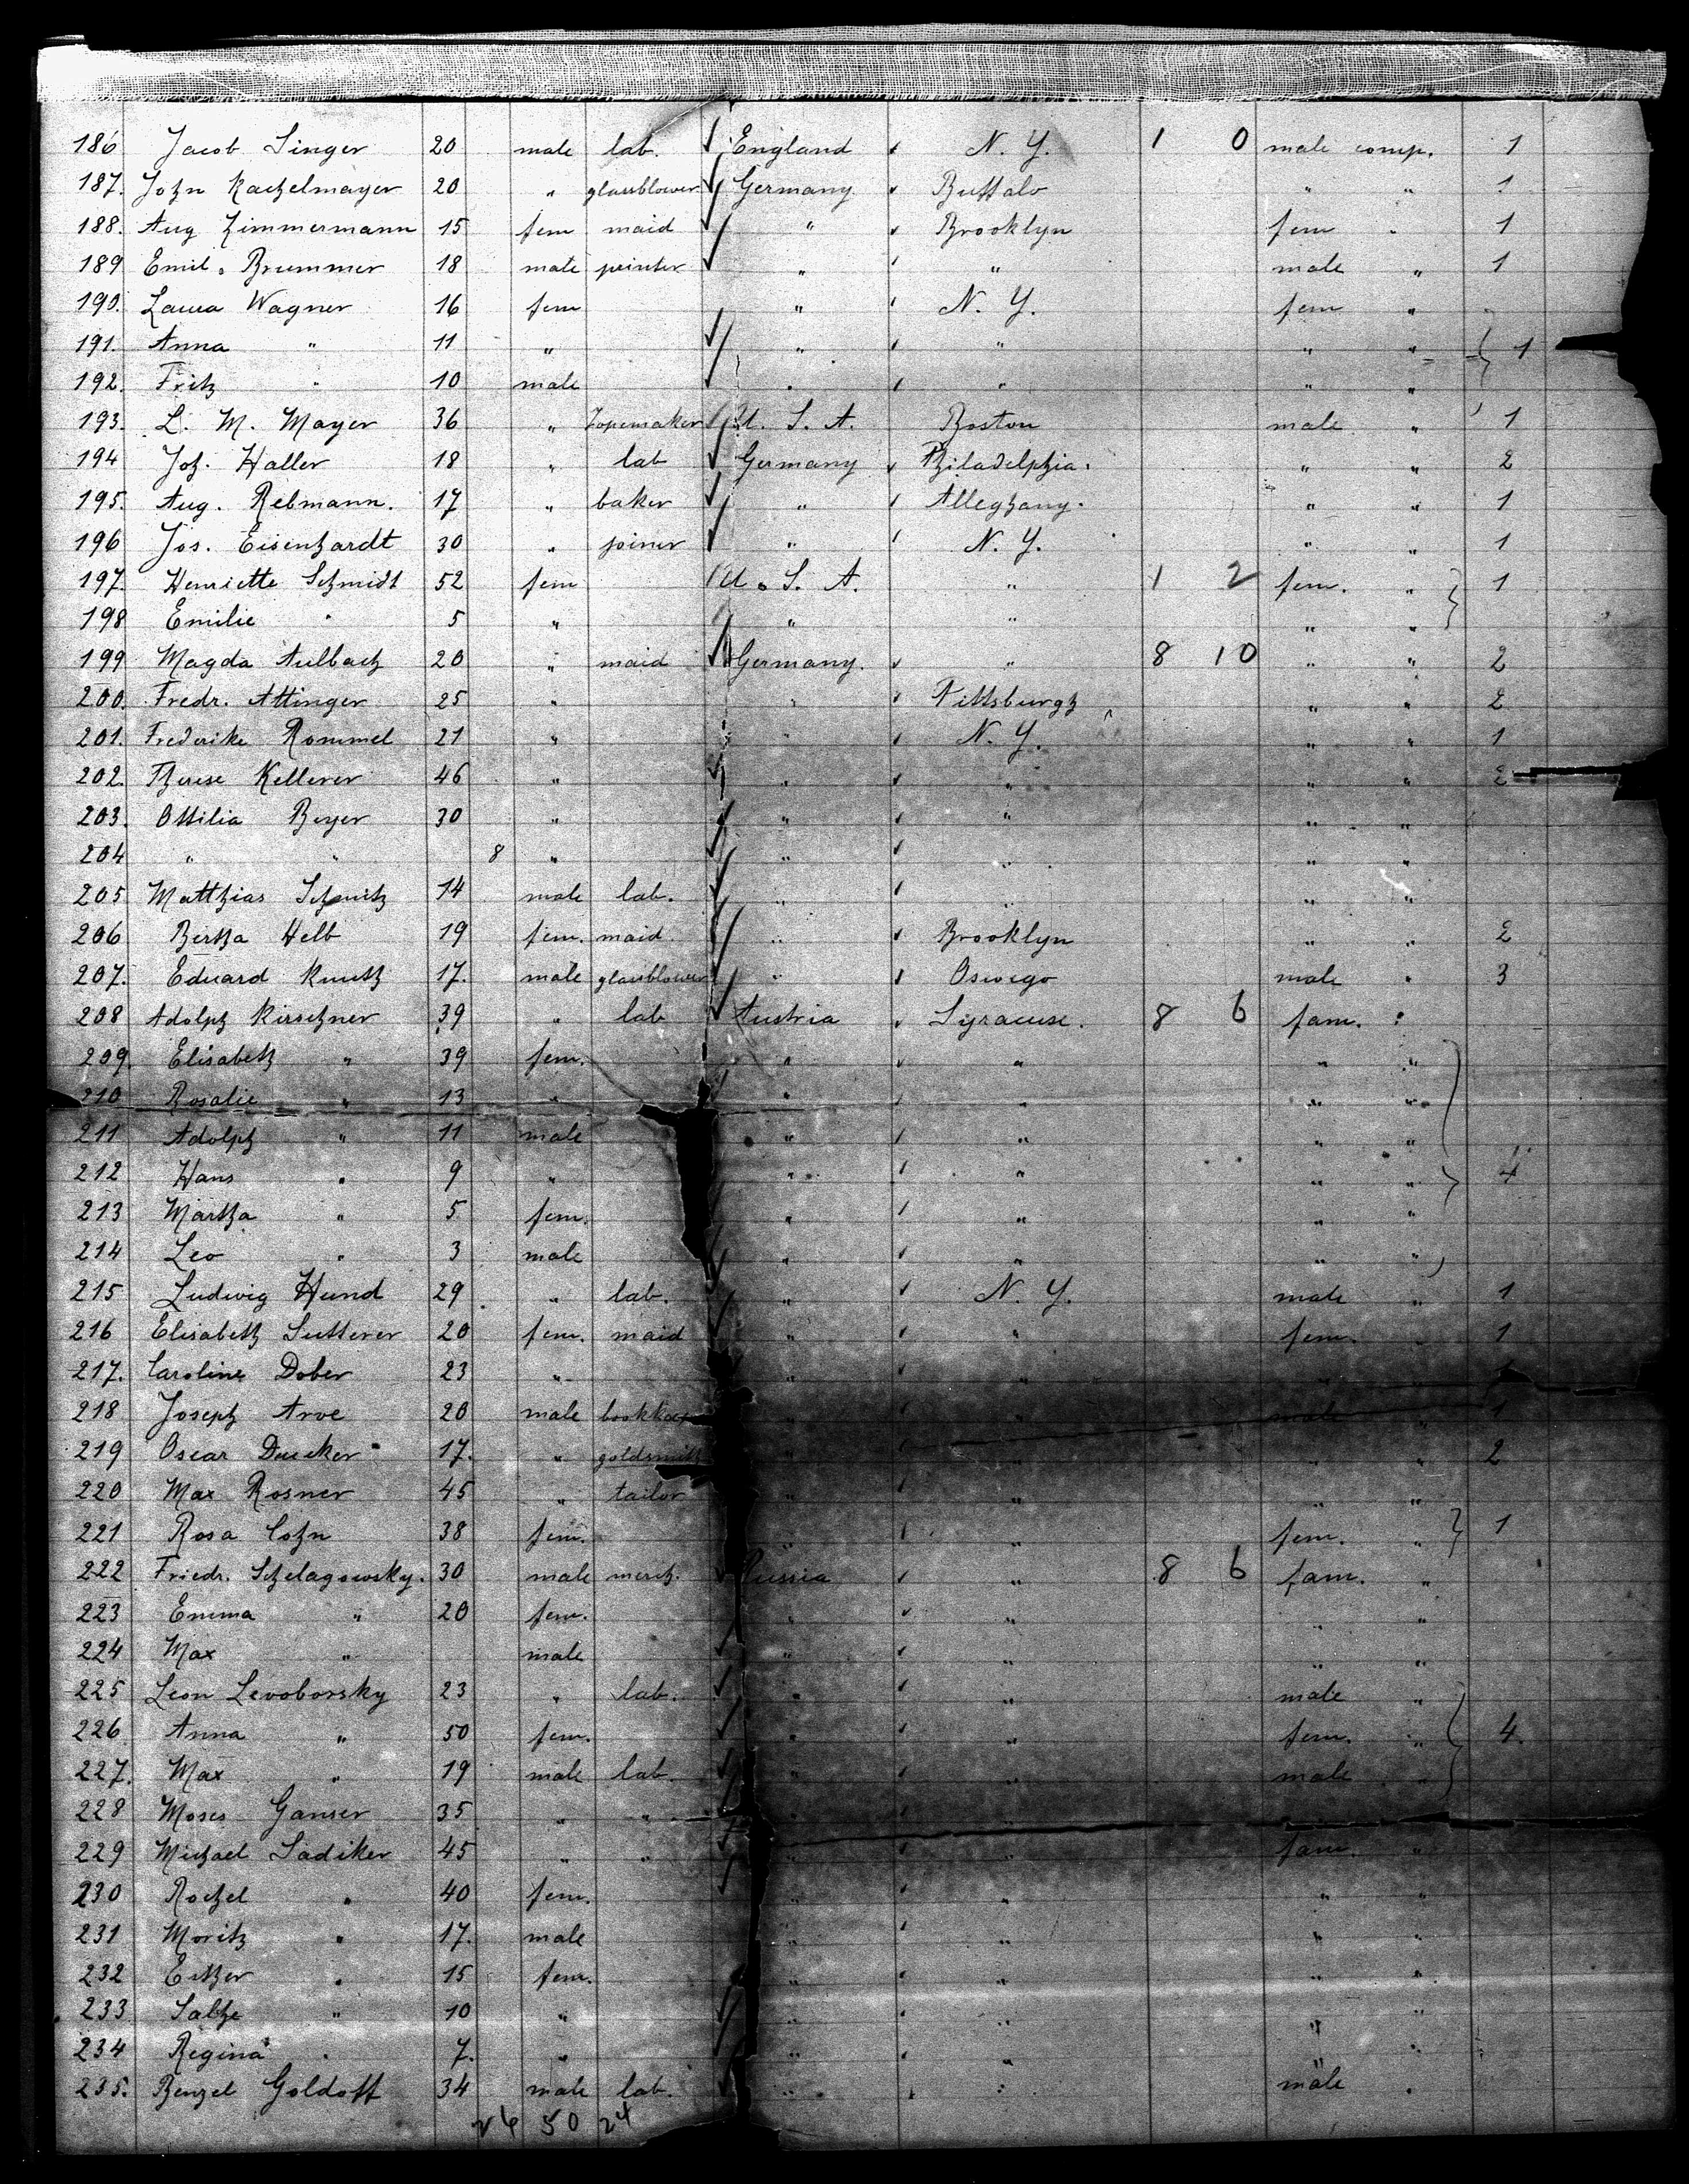 186 Jacob Singer 20 male lab. England N. Y. 1 0 male comp. 1
187. John Kachelmayer 20 " glassblower Germany Buffalo " " 1
188. Aug Zimmermann 15 fem maid " Brooklyn fem " 1
189 Emil Brummer 18 male painter " " male " 1
190. Laura Wagner 16 fem " N. Y. fem "
191. Anna " 11 " " " " " 1
192. Fritz " 10 male " " " "
193. L. M. Mayer 36 " U. S. A. Boston male " 1
194 Joh. Haller 18 " lab Germany Philadelphia. " " 2
195. Aug. Rebmann. 17 " baker " Alleghany. " " 1
196 Jos. Eisenhardt 30 " joiner " N. Y. " " 1
197. Henriette Schmidt 52 fem U. S. A. " 1 2 fem. " 1
198 Emilie " 5 " " " " "
199 Magda Aulbach 20 " maid Germany. " 8 10 " " 2
200. Fredr. Attinger 25 " " Pittsburgh " " 2
201. Frederike Rommel 21 " " N. Y. " " 1
202. Therese Kellerer 46 " " " " " 2
203. Ottilia Beyer 30 " " " " "
204 " " 8 " " " " "
205 Matthias Schmitz 14 male lab. " " " "
206 Bertha Helb 19 fem. maid. " Brooklyn " " 2
207. Eduard Knuth 17. male glassblower " Oswego male " 3
208 Adolph Kirschner 39 " lab Austria Syracuse. 8 6 fam. "
209. Elisabeth " 39 fem. " " " "
210 Rosalie " 13 " " " " "
211 Adolph " 11 male " " " "
212 Hans " 9 " " " " " 4
213 Martha " 5 fem. " " " "
214 Leo " 3 male " " " "
215 Ludwig Hund 29 " lab. " N. Y. male " 1
216 Elisabeth Sutterer 20 fem. maid " " fem. " 1
217. Caroline Dober 23 " " " " " 1
218 Joseph Arve 20 male bookkeep " " male " 1
219 Oscar Duecker 17. " goldsmith " " " " 2
220 Max Rosner 45 " tailor " " " "
221 Rosa Cohn 38 fem. " " fem. " 1
222 Friedr. Schelagowsky. 30 male merch. Russia " 8 6 fam. "
223 Emma " 20 fem. " " " "
224 Max " male " " " "
225 Leon Levoborsky 23 " lab. " " male "
226 Anna " 50 fem. " " fem. " 4.
227. Max " 19 male lab. " " male "
228 Moses Ganser 35 " " " "
229 Michael Sadiker 45 " " " " fam. "
230 Rochel " 40 fem. " " " "
231 Moritz " 17. male " " " "
232 Esther " 15 fem. " " " "
233 " 10 " " " " "
234 Regina " 7. " " " " "
235. Benzel Goldoff 34 male lab. " " male "
26 50 24